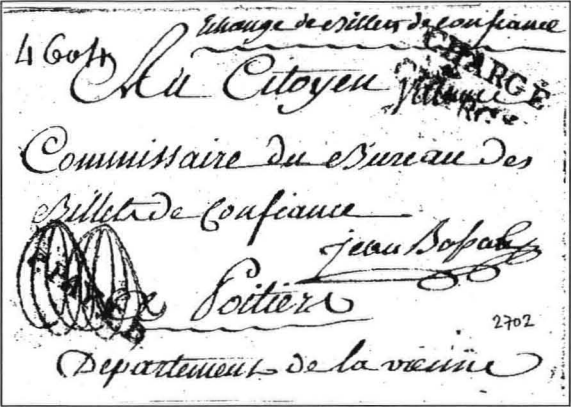 Echange de Billets de confiance
4604
CHARGÉ
Au Citoyen
Commissaire du Bureau des
Billets de Confiance
jean
Poitiers
2702
Departement de la vienne